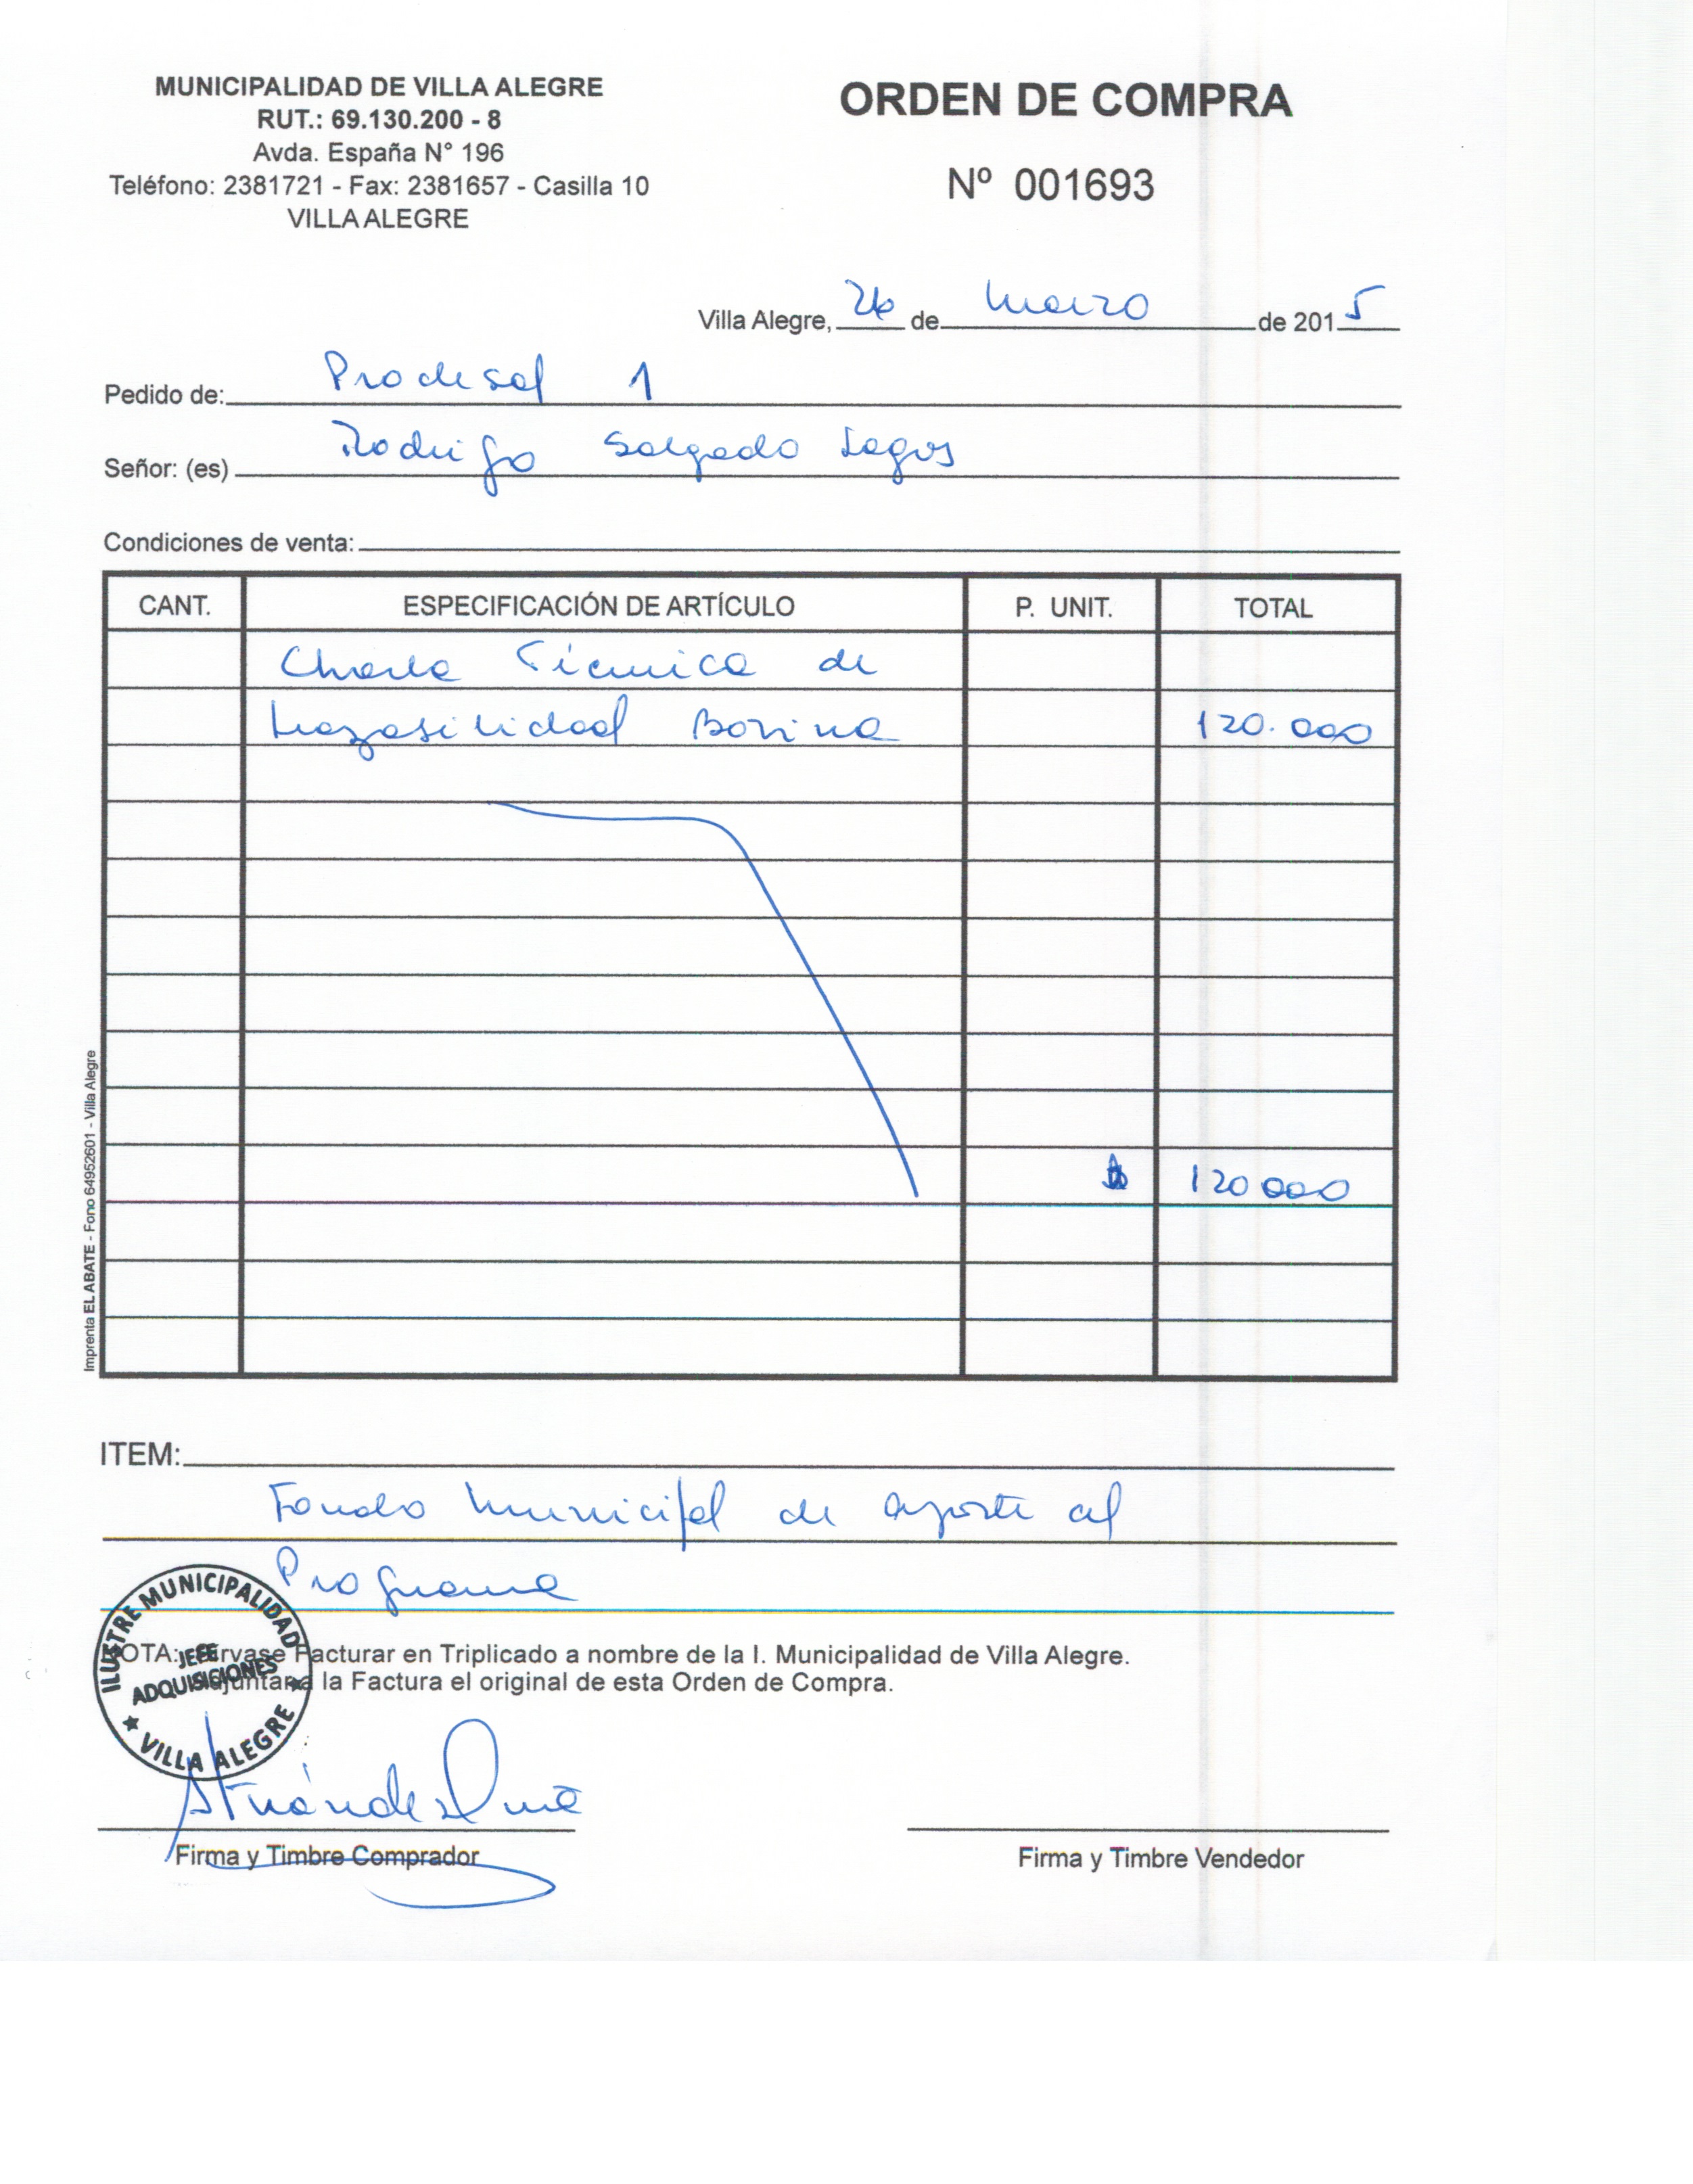 MUNICIPALIDAD DE VILLA ALEGRE
RUT.: 69.130.200 - 8
Avda. España N° 196
Teléfono: 2381721 - Fax: 2381657 - Casilla 10
VILLA ALEGRE
ORDEN DE COMPRA
Nº 001693
Villa Alegre, 26 de Marzo de 2015
Pedido de: Prodesal 1
Señor: (es) Rodrigo Salgado Lagos
Condiciones de venta:
CANT. ESPECIFICACIÓN DE ARTÍCULO P. UNIT. TOTAL
Charla Técnica de
trazabilidad Bovina 120.000
$ 120000
Imprenta EL ABATE - Fono 64952601 - Villa Alegre
ITEM:
Fondo Municipal de aporte al
Programa
ILUSTRE MUNICIPALIDAD
JEFE
ADQUISICIONES
VILLA ALEGRE
OTA: Sírvase Facturar en Triplicado a nombre de la I. Municipalidad de Villa Alegre.
la Factura el original de esta Orden de Compra.
Firma y Timbre Comprador
Firma y Timbre Vendedor